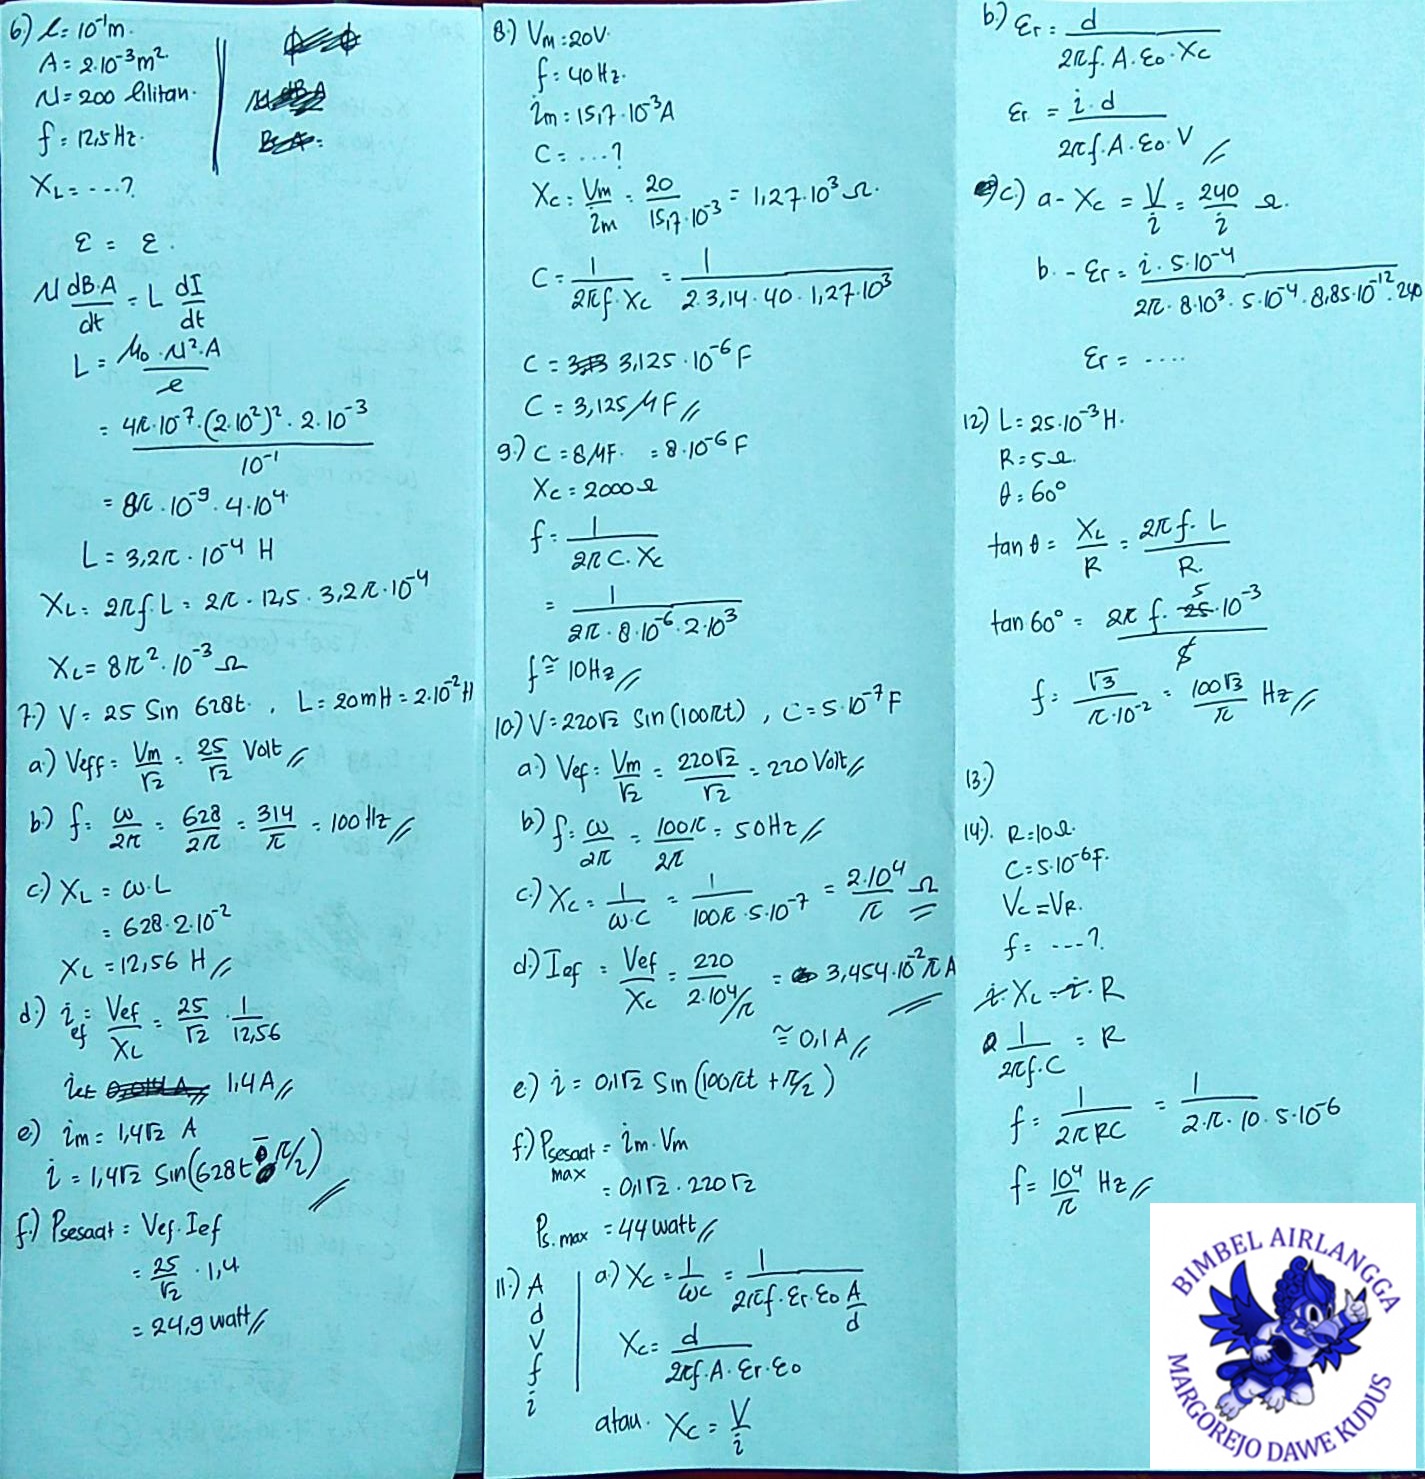 6.) l = 10⁻¹m.
A = 2.10⁻³m².
N = 200 lilitan.
f = 12,5 Hz.
XL = ....?
ε = ε.
N dB.A/dt = L dI/dt
L = μ₀.N².A/l
= 4π.10⁻⁷.(2.10²)².2.10⁻³/10⁻¹
= 8π.10⁻⁹.4.10⁴
L = 3,2π.10⁻⁴ H
XL = 2πf.L = 2π.12,5.3,2π.10⁻⁴
XL = 8π².10⁻³ Ω
7.) V = 25 Sin 628t. , L = 20mH = 2.10⁻²H
a.) Veff = Vm/√2 = 25/√2 Volt
b.) f = ω/2π = 628/2π = 314/π = 100 Hz
c.) XL = ω.L
= 628.2.10⁻²
XL = 12,56 H
d.) ief = Vef/XL = 25/√2 . 1/12,56
ief 1,4 A
e.) im = 1,4√2 A
i = 1,4√2 Sin(628t - π/2)
f.) Psesaat = Vef.Ief
= 25/√2 . 1,4
= 24,9 watt
8.) Vm = 20V.
f = 40 Hz.
im = 15,7.10⁻³A
C = ....?
Xc = Vm/im = 20/15,7.10⁻³ = 1,27.10³ Ω.
C = 1/2πf.Xc = 1/2.3,14.40.1,27.10³
C = 3,125.10⁻⁶ F
C = 3,125 μF
9.) C = 8μF. = 8.10⁻⁶ F
Xc = 2000Ω
f = 1/2πC.Xc
= 1/2π.8.10⁻⁶.2.10³
f ≅ 10Hz
10.) V = 220√2 Sin(100πt) , C = 5.10⁻⁷F
a.) Vef = Vm/√2 = 220√2/√2 = 220 Volt
b.) f = ω/2π = 100π/2π = 50Hz
c.) Xc = 1/ω.C = 1/100π.5.10⁻⁷ = 2.10⁴/π Ω
d.) Ief = Vef/Xc = 220/2.10⁴/π = 3,454.10⁻²π A
≅ 0,1 A
e.) i = 0,1√2 Sin(100πt + π/2)
f.) Psesaat max = im.Vm
= 0,1√2.220√2
Ps.max = 44 watt
11.) A
d
V
f
i
a.) Xc = 1/ωC = 1/2πf.εr.ε₀ A/d
Xc = d/2πf.A.εr.ε₀
atau. Xc = V/i
b.) εr = d/2πf.A.ε₀.Xc
εr = i.d/2πf.A.ε₀.V
c.) a - Xc = V/i = 240/i Ω.
b. - εr = i.5.10⁻⁴/2π.8.10³.5.10⁻⁴.8,85.10⁻¹².240
εr = ....
12.) L = 25.10⁻³H.
R = 5Ω.
θ = 60°
tan θ = XL/R = 2πf.L/R.
tan 60° = 2π f.25.10⁻³/5
5
f = √3/π.10⁻² = 100√3/π Hz
13.)
14.) R = 10Ω.
C = 5.10⁻⁶F.
Vc = VR.
f = ....?
i.XL = i.R
1/2πf.C = R
f = 1/2πRC = 1/2.π.10.5.10⁻⁶
f = 10⁴/π Hz
BIMBEL AIRLANGGA
MARGOREJO DAWE KUDUS